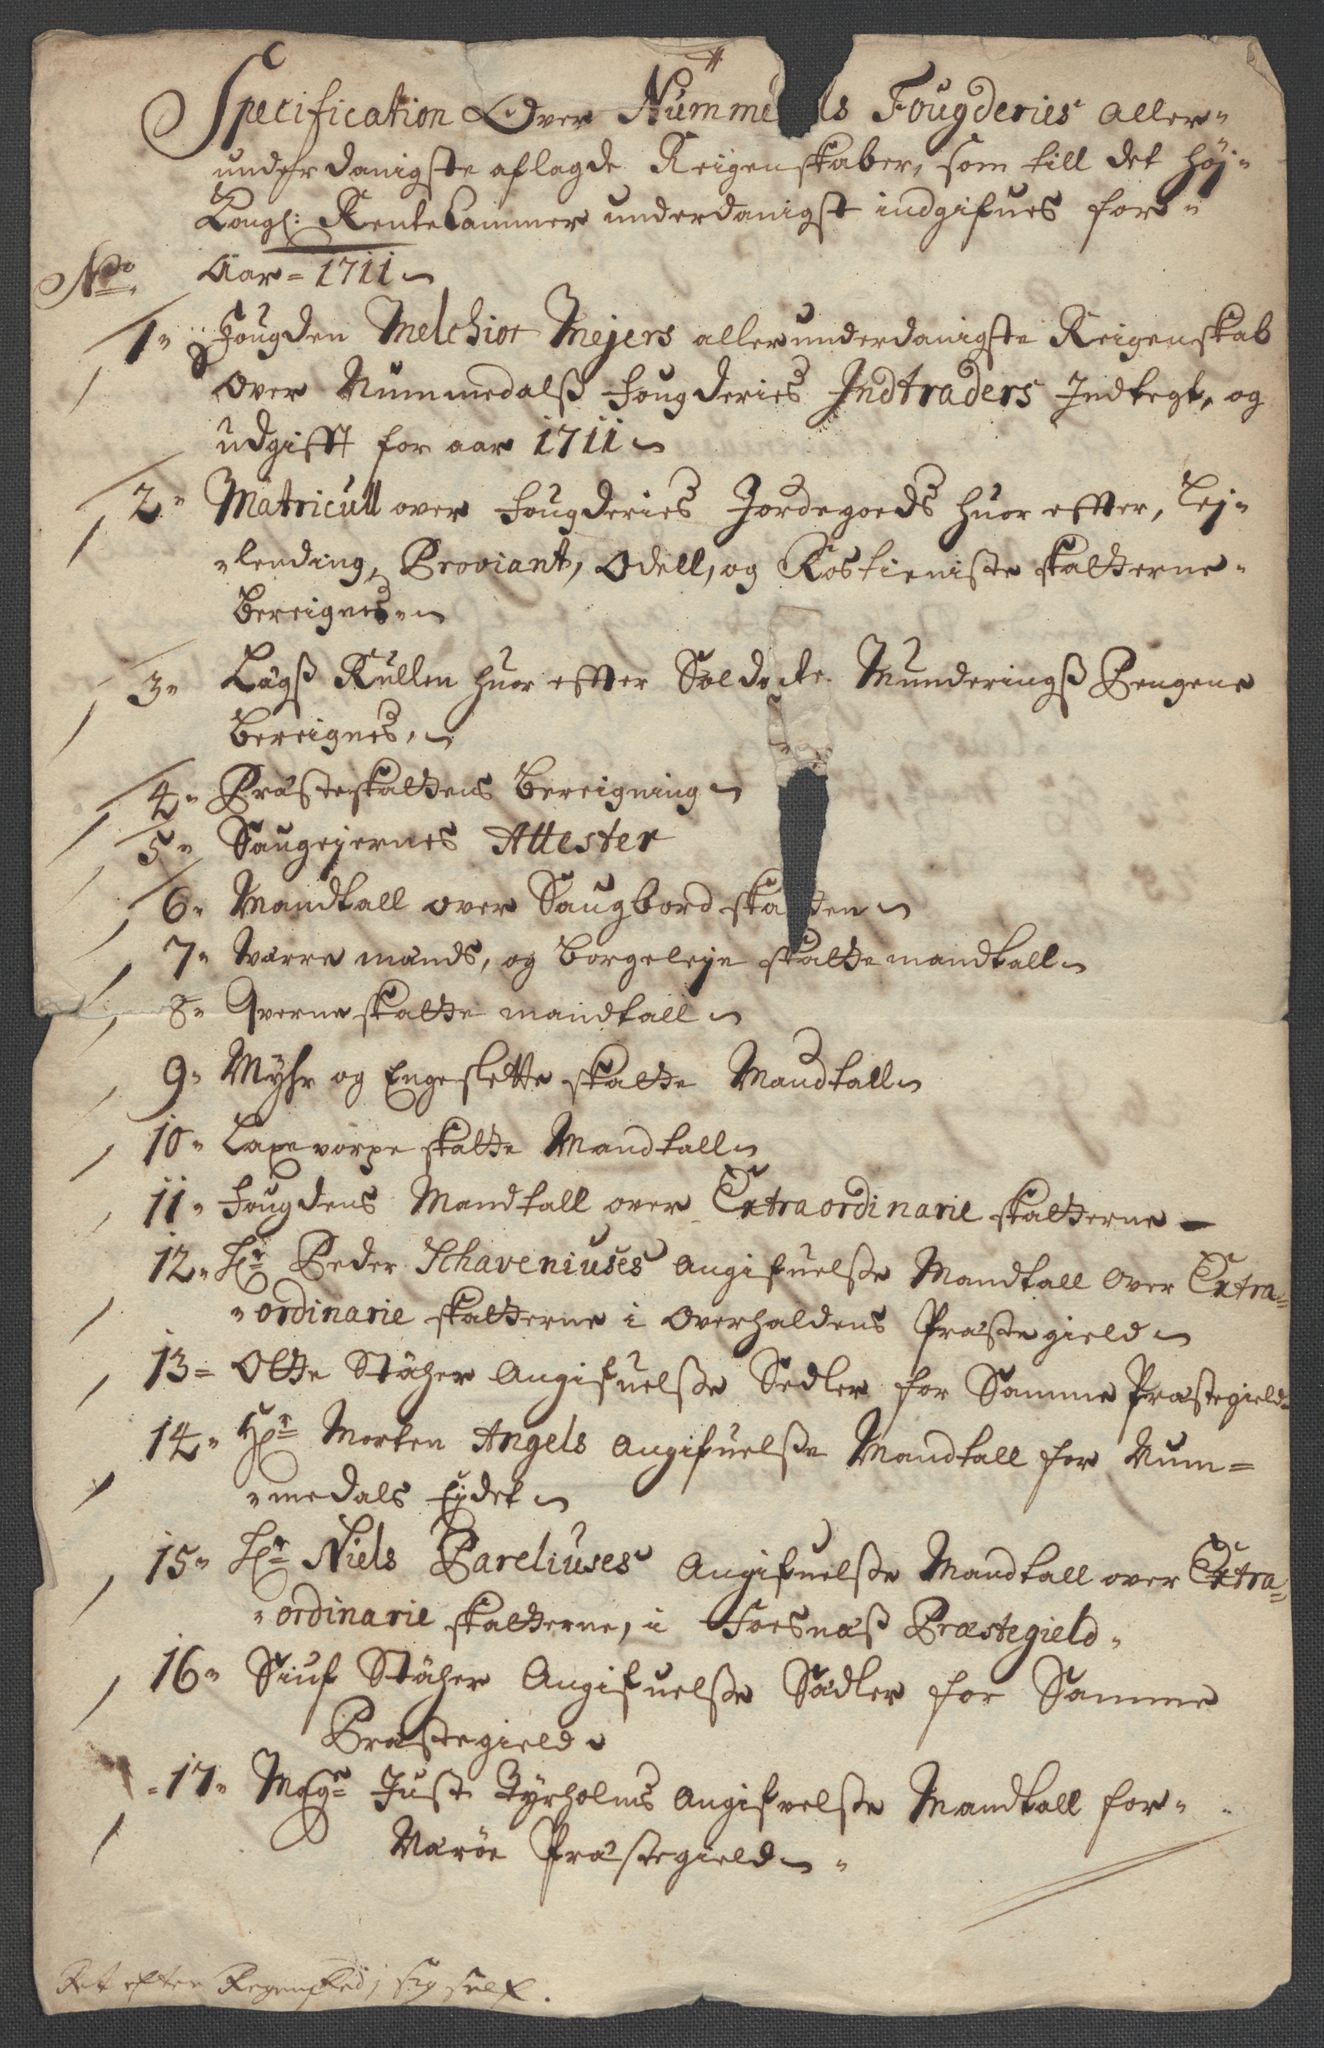 Specification Over Numme ls Fougderies aller-
underdanigste aflagde Reigenskaber, som till det Høj-
Kongl: RenteCammer underdanigst indgifues for-
No. Aar = 1711
1 = Fougden Melchior Mejers allerunderdanigste Reigenskab
Over Nummedalß Fougderies Indtraders Indtegt, og
udgifft for aar 1711
2 = Matricull over Fougderies Jordegoeds huor effter, Lej-
-lending, Proviant, Odell, og Rostieniste skatterne
Bereignes
3 = Lägß Rullen huor effter Soldate Munderingß Pengene
Bereignes,
4 = Præsteskattens Bereigning
5 = Saugejernes Attester
6 = Mandtall over Saugbord skatten
7 = Warre mands, og borgeleye skatte mandtall
8 = Qverne skatte mandtall
9 = Myhr og Engeslette skatte Mandtall
10 = Laxevorpe skatte Mandtall
11 = Fougdens Mandtall over Extraordinarie skatterne
12 = Hr Peder Schaveniuses Angifuelße Mandtall Over Extra-
-ordinarie skatterne i Overhaldens Præstegield
13 = Otte Stäher Angifuelße Sedler for Samme Præstegield
14 = Hr Morten Angels Angifuelße Mandtall for Num=
-medals Eydet
15 = Hr Niels Pareliuses Angifuelße Mandtall over Extra-
-ordinarie skatterne, i Foesnæß Præstegield
16 = Siuf Stäher Angifuelße Sädler for Samme
Præstegield
17 = Mag Just Tyrholms Angifvelße Mandtall for
Nærøe Præstegield
Ret efter Regenskab i sig self.